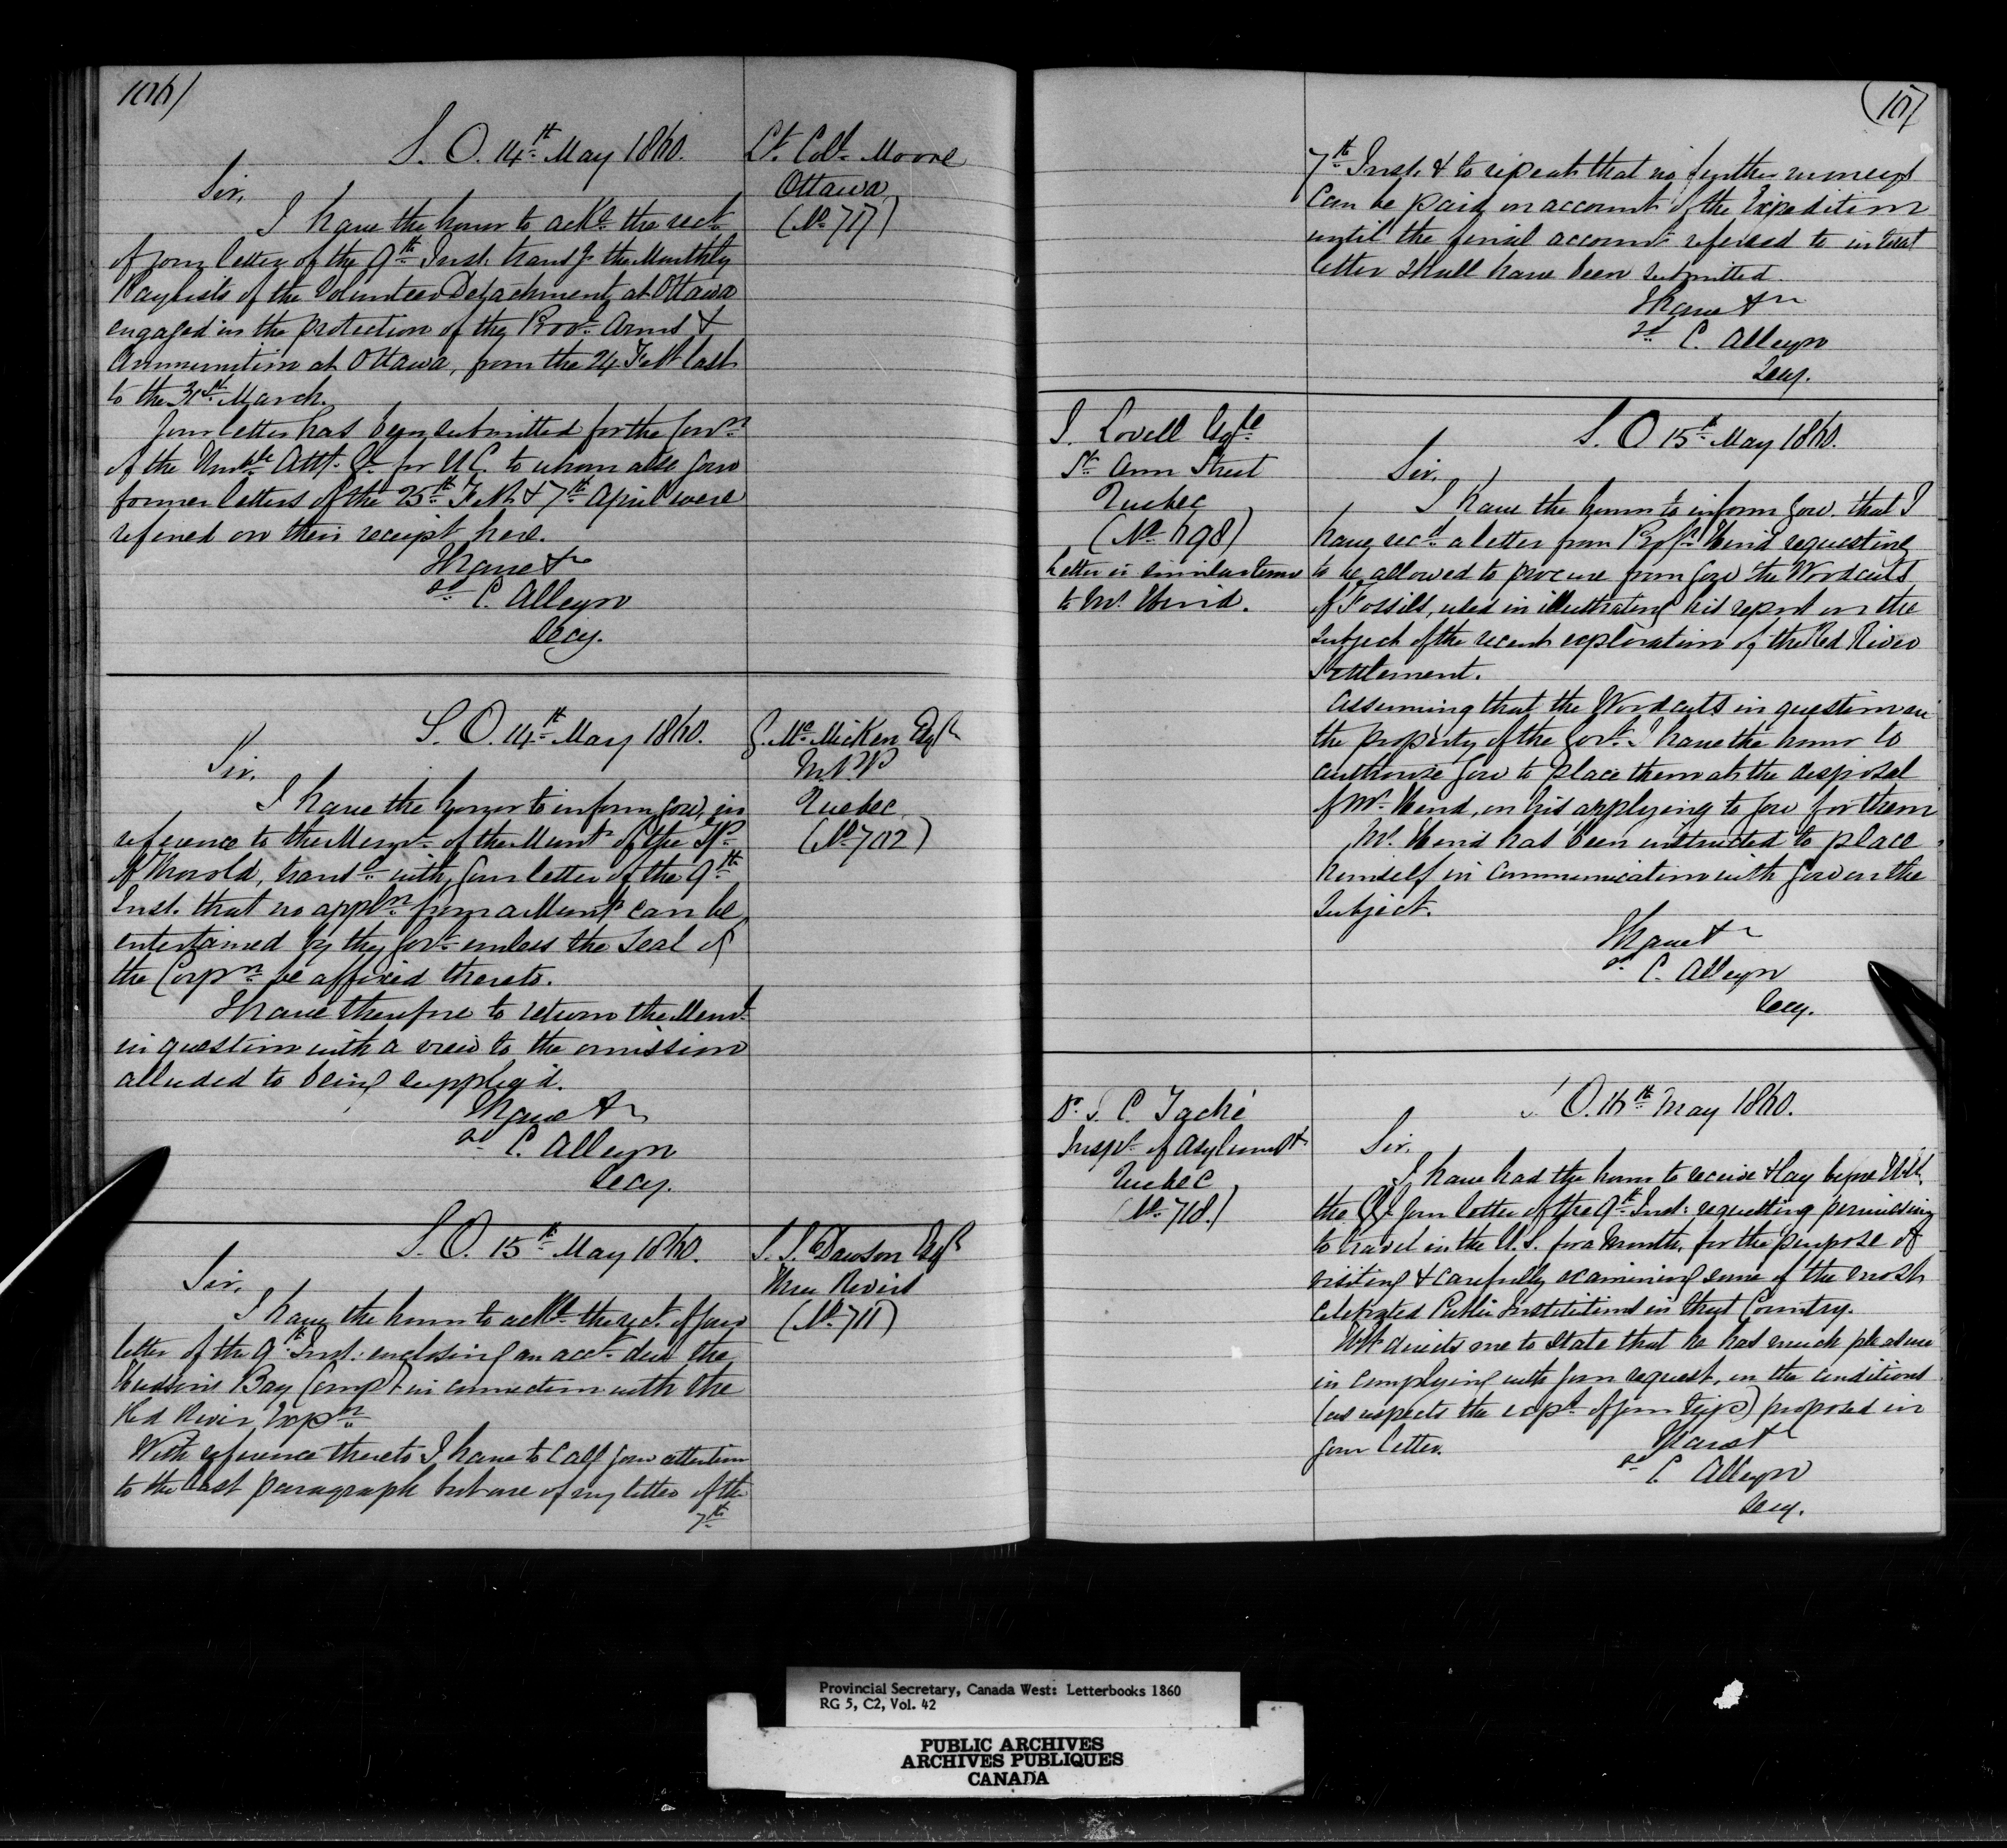 106)
S. O. 14th May 1860.
Lt. Coll. Moore
Ottawa
(No 717)
Sir,
I have the honor to ackn. the rect.
of your letter of the 9th Inst. transg. the Monthly
Paylists of the Volunteer Detachment at Ottawa
engaged in the protection of the Provl. Arms &
Ammunition at Ottawa, from the 24 Feb last
to the 31st March.
Your letter has been submitted for the Conn.
of the Honble. Atty. Gl. for U.C. to whom also your
former letters of the 25th Feb. & 7th April were
referred on their receipt here.
I have &c
sd. C. Alleyn
Secy.
S. O. 14th May 1860.
G. McMicken Esqr
M.P.P.
Quebec
(No 702)
Sir,
I have the honor to inform you, in
reference to the Meml. of the Munt. of the Tp.
of Thorold, transd. with your letter of the 9th
Inst. that no appln. from a Munt. can be
entertained by the Govt. unless the Seal of
the Corpn. be affixed thereto.
I have therefore to return the Meml.
in question with a view to the omission
alluded to being supplied.
I have &c
sd. C. Alleyn
Secy.
S. O. 15th May 1860.
S. J. Dawson Esqr
Three Rivers
(No 711)
Sir,
I have the honor to ackn. the rect. of your
letter of the 9th Inst. enclosing an acct. due the
Hudson's Bay Compy. in connection with the
Red River Expn.
With reference thereto I have to call your attention
to the last paragraph but one of my letter of the
7th
107
7th Inst. & to repeat that no further moneys
can be paid on account of the Expedition
until the final account referred to in that
letter shall have been submitted.
I have &c
sd. C. Alleyn
Secy.
J. Lovell Esqre
St. Ann Street
Quebec
(No 698)
Letter in similar terms
to Mr. Hind.
S. O. 15th May 1860.
Sir,
I have the honor to inform you that I
have recd. a letter from Profr. Hind requesting
to be allowed to procure from you the Woodcuts
of Fossils, used in illustrating his report on the
subject of the recent exploration of the Red River
Settlement.
Assuming that the Woodcuts in question are
the property of the Govt. I have the honor to
authorize you to place them at the disposal
of Mr. Hind, on his applying to you for them
Mr. Hind has been instructed to place
himself in communication with you on the
subject.
I have &c
sd. C. Alleyn
Secy.
Dr. J. C. Taché
Inspr. of Asylums &
Quebec
(No 718.)
S. O. 16th May 1860.
Sir,
I have had the honor to receive & lay before H.E.
the G.G. your letter of the 9th Inst. requesting permission
to travel in the U.S. for a Month, for the purpose of
visiting & carefully examining some of the most
celebrated Public Institutions in that Country.
H.E. directs me to state that he has much pleasure
in complying with your request, on the conditions
(as respects the exps. of your trip) proposed in
your letter.
I have &c
sd. C. Alleyn
Secy.
Provincial Secretary, Canada West: Letterbooks 1860
RG 5, C2, Vol. 42
PUBLIC ARCHIVES
ARCHIVES PUBLIQUES
CANADA